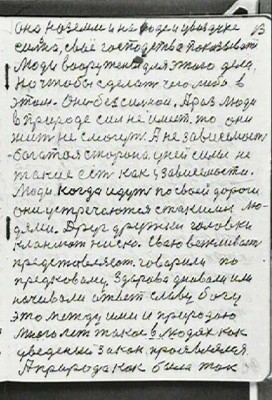 Она на земли и на воде и в воздухе 13
сила, свое господства показывает
Люди вооружены для этого дела.
Но чтобы сделат чего либо в
этом. Оно без силной. А раз люди
в природе сил не имеет. то они
жит не смогут. А не зависемост
богатая сторона у ней силы не
такие ест как у зависемости.
Люди когда идут по своей дороги
они устречаются с такими лю-
дями. Друг дружки головки
кланяют ниско. Сваю вежливаст
предствовляют. говорили по
предковому здарова дновали или
начивали ответ славу богу
это между ими и природою
много лет такое в людях как
уведеный закон проявлялся.
А природа как была так